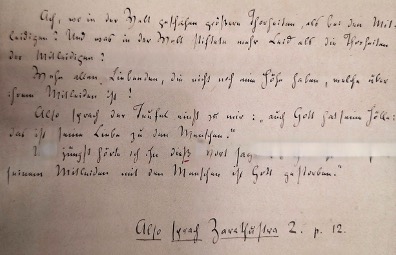 Ach, wo in der Welt geschahen größere Thorheiten, als bei den Mit-
leidigen? Und was in der Welt stiftete mehr Leid als die Thorheiten
der Mitleidigen?
Wehe allen Liebenden, die nicht noch eine Höhe haben, welche über
ihrem Mitleiden ist!
Also sprach der Teufel einst zu mir: „auch Gott hat seine Hölle:
das ist seine Liebe zu den Menschen."
jüngst hörte ich ihn dieß Wort sag
seinem Mitleiden mit den Menschen ist Gott gestorben."
Also sprach Zarathustra 2. p. 12.